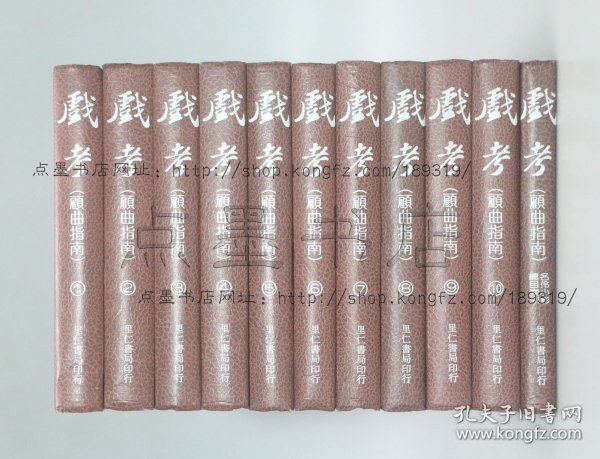 戲考
(顧曲指南)
①
里仁書局印行
戲考
(顧曲指南)
②
里仁書局印行
戲考
(顧曲指南)
③
里仁書局印行
戲考
(顧曲指南)
④
里仁書局印行
戲考
(顧曲指南)
⑤
里仁書局印行
戲考
(顧曲指南)
⑥
里仁書局印行
戲考
(顧曲指南)
⑦
里仁書局印行
戲考
(顧曲指南)
⑧
里仁書局印行
戲考
(顧曲指南)
⑨
里仁書局印行
戲考
(顧曲指南)
⑩
里仁書局印行
戲考
(顧曲指南)
里仁書局印行
点墨书店网址: http://shop.kongfz.com/189319/
点墨书店
点墨书店网址: http://shop.kongfz.com/189319/
孔夫子旧书网
www.kongfz.com